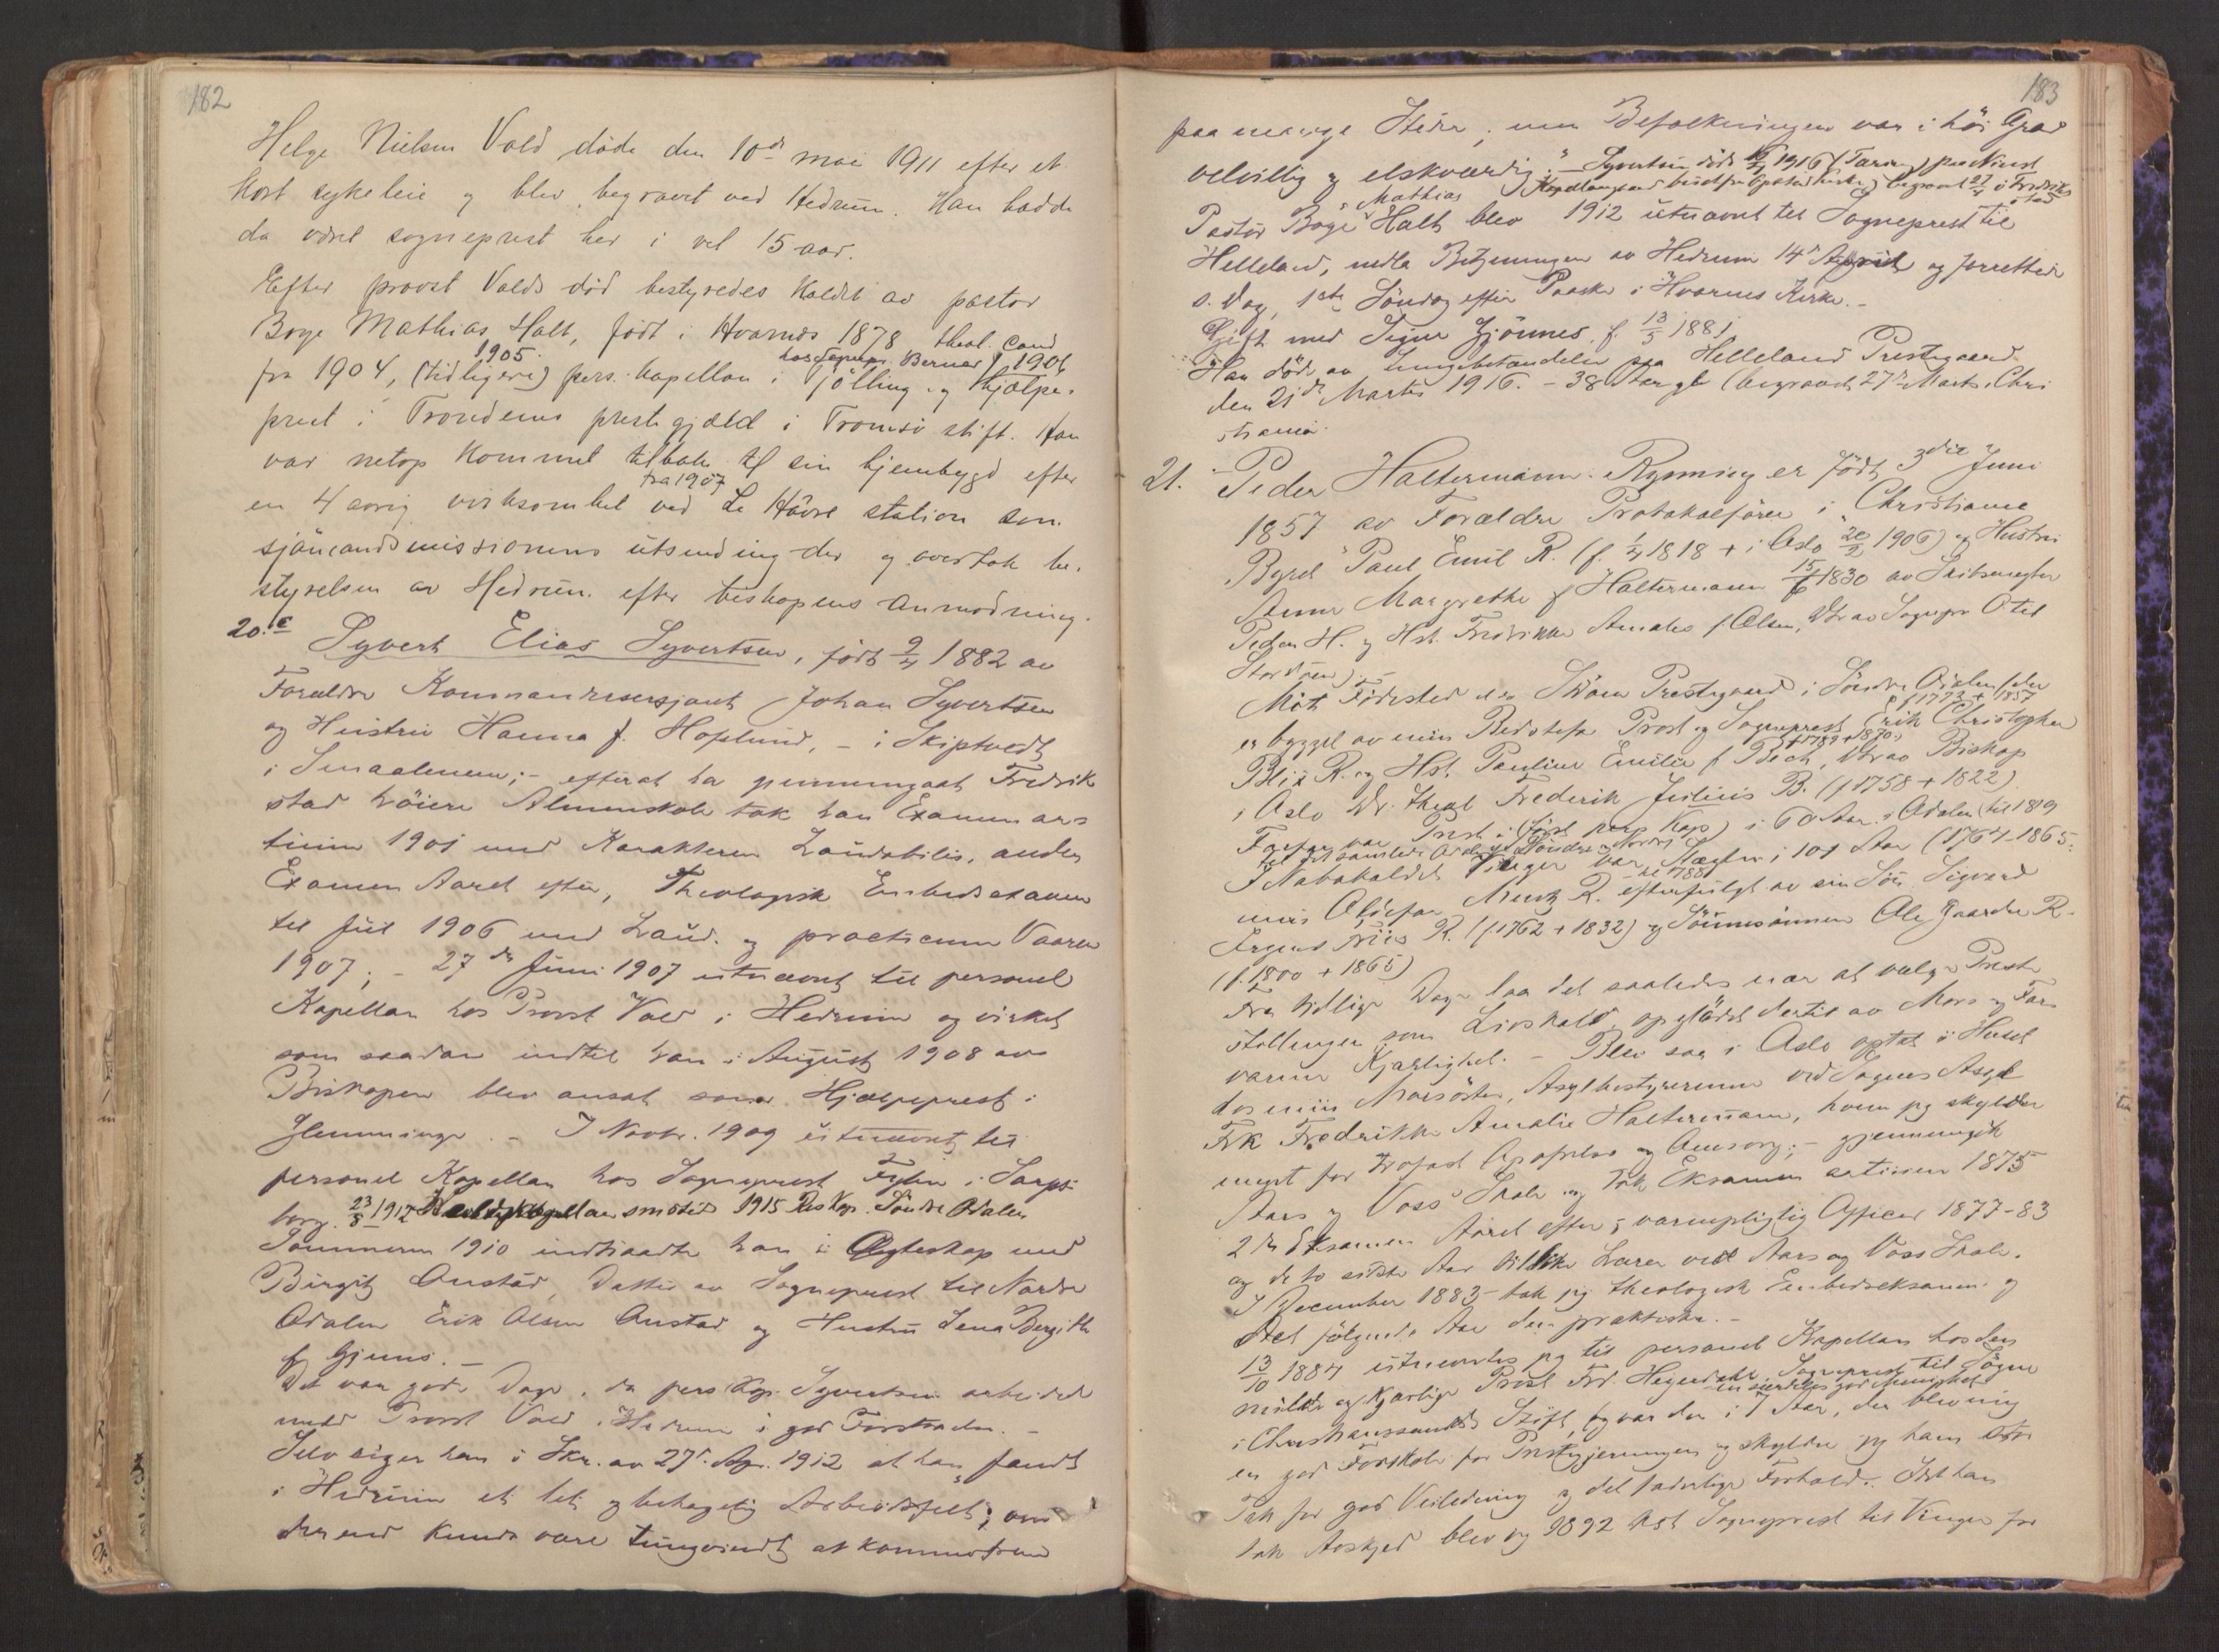 182
Helge Nielsen Vold døde den 10de mai 1911 efter et
kort sykeleie og blev begravet ved Hedrum. Han hadde
da været sogneprest her i vel 15 aar.
Efter provst Volds død bestyredes kaldet av pastor
Boye Mathias Holt, født i Hvarnes 1878 theol. cand
fra 1904, (tidligere) 1905 pers. kapellan i Tjølling hos Sognepr. Berner og 1906 hjælpe-
prest i Trondenes prestegjæld i Tromsø stift. Han
var netop kommet tilbake til sin hjembygd efter
en 4 aarig virksomhet fra 1907 ved Le Hâvre station som
sjømandsmissionens utsending der og overtok be-
styrelsen av Hedrum efter biskopens anmodning.
20. Syvert Elias Syvertsen, født 9/4 1882 av
Forældre Kommandersersjant Johan Syvertsen
og Hustru Hanna f. Hoflund, - i Skiptvedt
i Smaalenene; - efterat ha gjennemgaat Fredrik-
stad høiere Almenskole tok han Examen ar-
tium 1901 med Karakteren Laudabilis, anden
Examen Aaret efter, Theologisk Embedsexamen
til Jul 1906 med Laud. og practicum Vaaren
1907; - 27de Juni 1907 utnævnt til personel
Kapellan hos Provst Vold i Hedrum og virket
som saadan indtil han i August 1908 av
Biskopen blev ansat som Hjælpeprest i
Glemminge. - I Novbr. 1909 utnævnt til
personel Kapellan hos Sogneprest i Sarps-
borg. 23/8 1912 1915 Res Kap. Søndre Odalen
Sommeren 1910 indtraadte han i Ægteskap med
Birgit Onstad, Datter av Sogneprest til Nordre
Odalen Erik Olsen Onstad og Hustru Lena Bergithe
f. Gjems. -
Det var gode Dage, da pers Kap. Syvertsen arbeidet
med Provst Vold i Hedrum i god Forstaaelse. -
Selv siger han i Skr. av 27d. Apr. 1912 at han "fandt
i Hedrum et let og behagelig Arbeidsfelt; om
der end kunde være tungvindt at komme frem
183
paa mange Steder, men Befolkningen var i høi Grad
velvillig og elskværdig." - Syvertsen døde 1916 begravet 27/4 i Fredrikstad
Pastor Boye Mathias Holt blev 1912 utnævnt til Sogneprest til
Helleland, nedla Betjeningen av Hedrum 14de April og forrettede
s. Dag, 1ste Søndag efter Paaske i Hvarnes Kirke. -
Gift med Signe Gjönnes, f. 13/5 1881
Han døde av Lungebetændelse paa Helleland Prestegaard
den 21de Marts 1916. - 38 Aar gl. (begravet 27de Marts i Chri-
stiania.
21. - Peder Haltermann Rynning er født 3die Juni
1857 av Forældre Protokolfører i Christiania
Byret Paul Emil R. (f. 1/4 1818 + i Oslo 20/2 1906) og Hustru
Anne Margrethe f. Haltermann 15/6 1830 av Skibsmægler
Peder H. og Hst. Fredrikke Amalie f. Olsen, Dtr av Sognepr O. til
Stordøen). -
Mit Fødested er Strøm Prestegaard i Søndre Odalen, der
er bygget av min Bedstefar Provst og Sogneprest Erik Christopher f 1773 + 1857
Blix R. og Hst. Pauline Emilie f. Bech, f 1789 + 1870, Dtr av Biskop
i Oslo Dr. theol Frederik Julius B. (f 1758 + 1822)
Farfar var Prest (først pers Kap) i 60 Aar i Odalen (til 1819
til det samlede Odalen Søndre og Nordre
I Nabokaldet Vinger var Slægten i 101 Aar (1764-1865:
min Oldefar Mentz R. til 1788 efterfulgt av sin Søn Sigvard
Irgens Friis R. (f 1762 + 1832) og Sønnesønnen Ole Gaarder R.
(f. 1800 + 1865)
Fra tidlige Dage laa det saaledes nær at vælge Preste-
stillingen som Livskald, opglødet dertil av Mors og Fars
varme Kjærlighet. - Blev saa i Oslo optat i Huset
hos min Morsøster, Asylbestyrerinne ved Sagenes Asyl
Frk Fredrikke Amalie Haltermann, hvem jeg skylder
meget for trofast Opofrelse og Omsorg; - gjennemgik
Aars og Voss' Skole og tok Eksamen artium 1875
2den Eksamen Aaret efter; varnepligtig Officer 1877-83
og de to sidste Aar tillike Lærer ved Aars og Voss Skole.
I December 1883 tok jeg theologisk Embedseksamen og
Aret følgende Aar den praktiske. -
13/10 1884 utnævntes jeg til personel Kapellan hos den
milde og kjærlige Provst Fr. Heyerdahl, Sogneprest til Søgne
i Christianssands Stift. Jeg var der i 7 Aar, der blev mig
en god Forskole for Prestegjerningen og skylder jeg ham stor
Tak for god Veiledning og det faderlige Forhold. Idet han
tok Avsked blev jeg 1892 kst Sogneprest til Vinger for